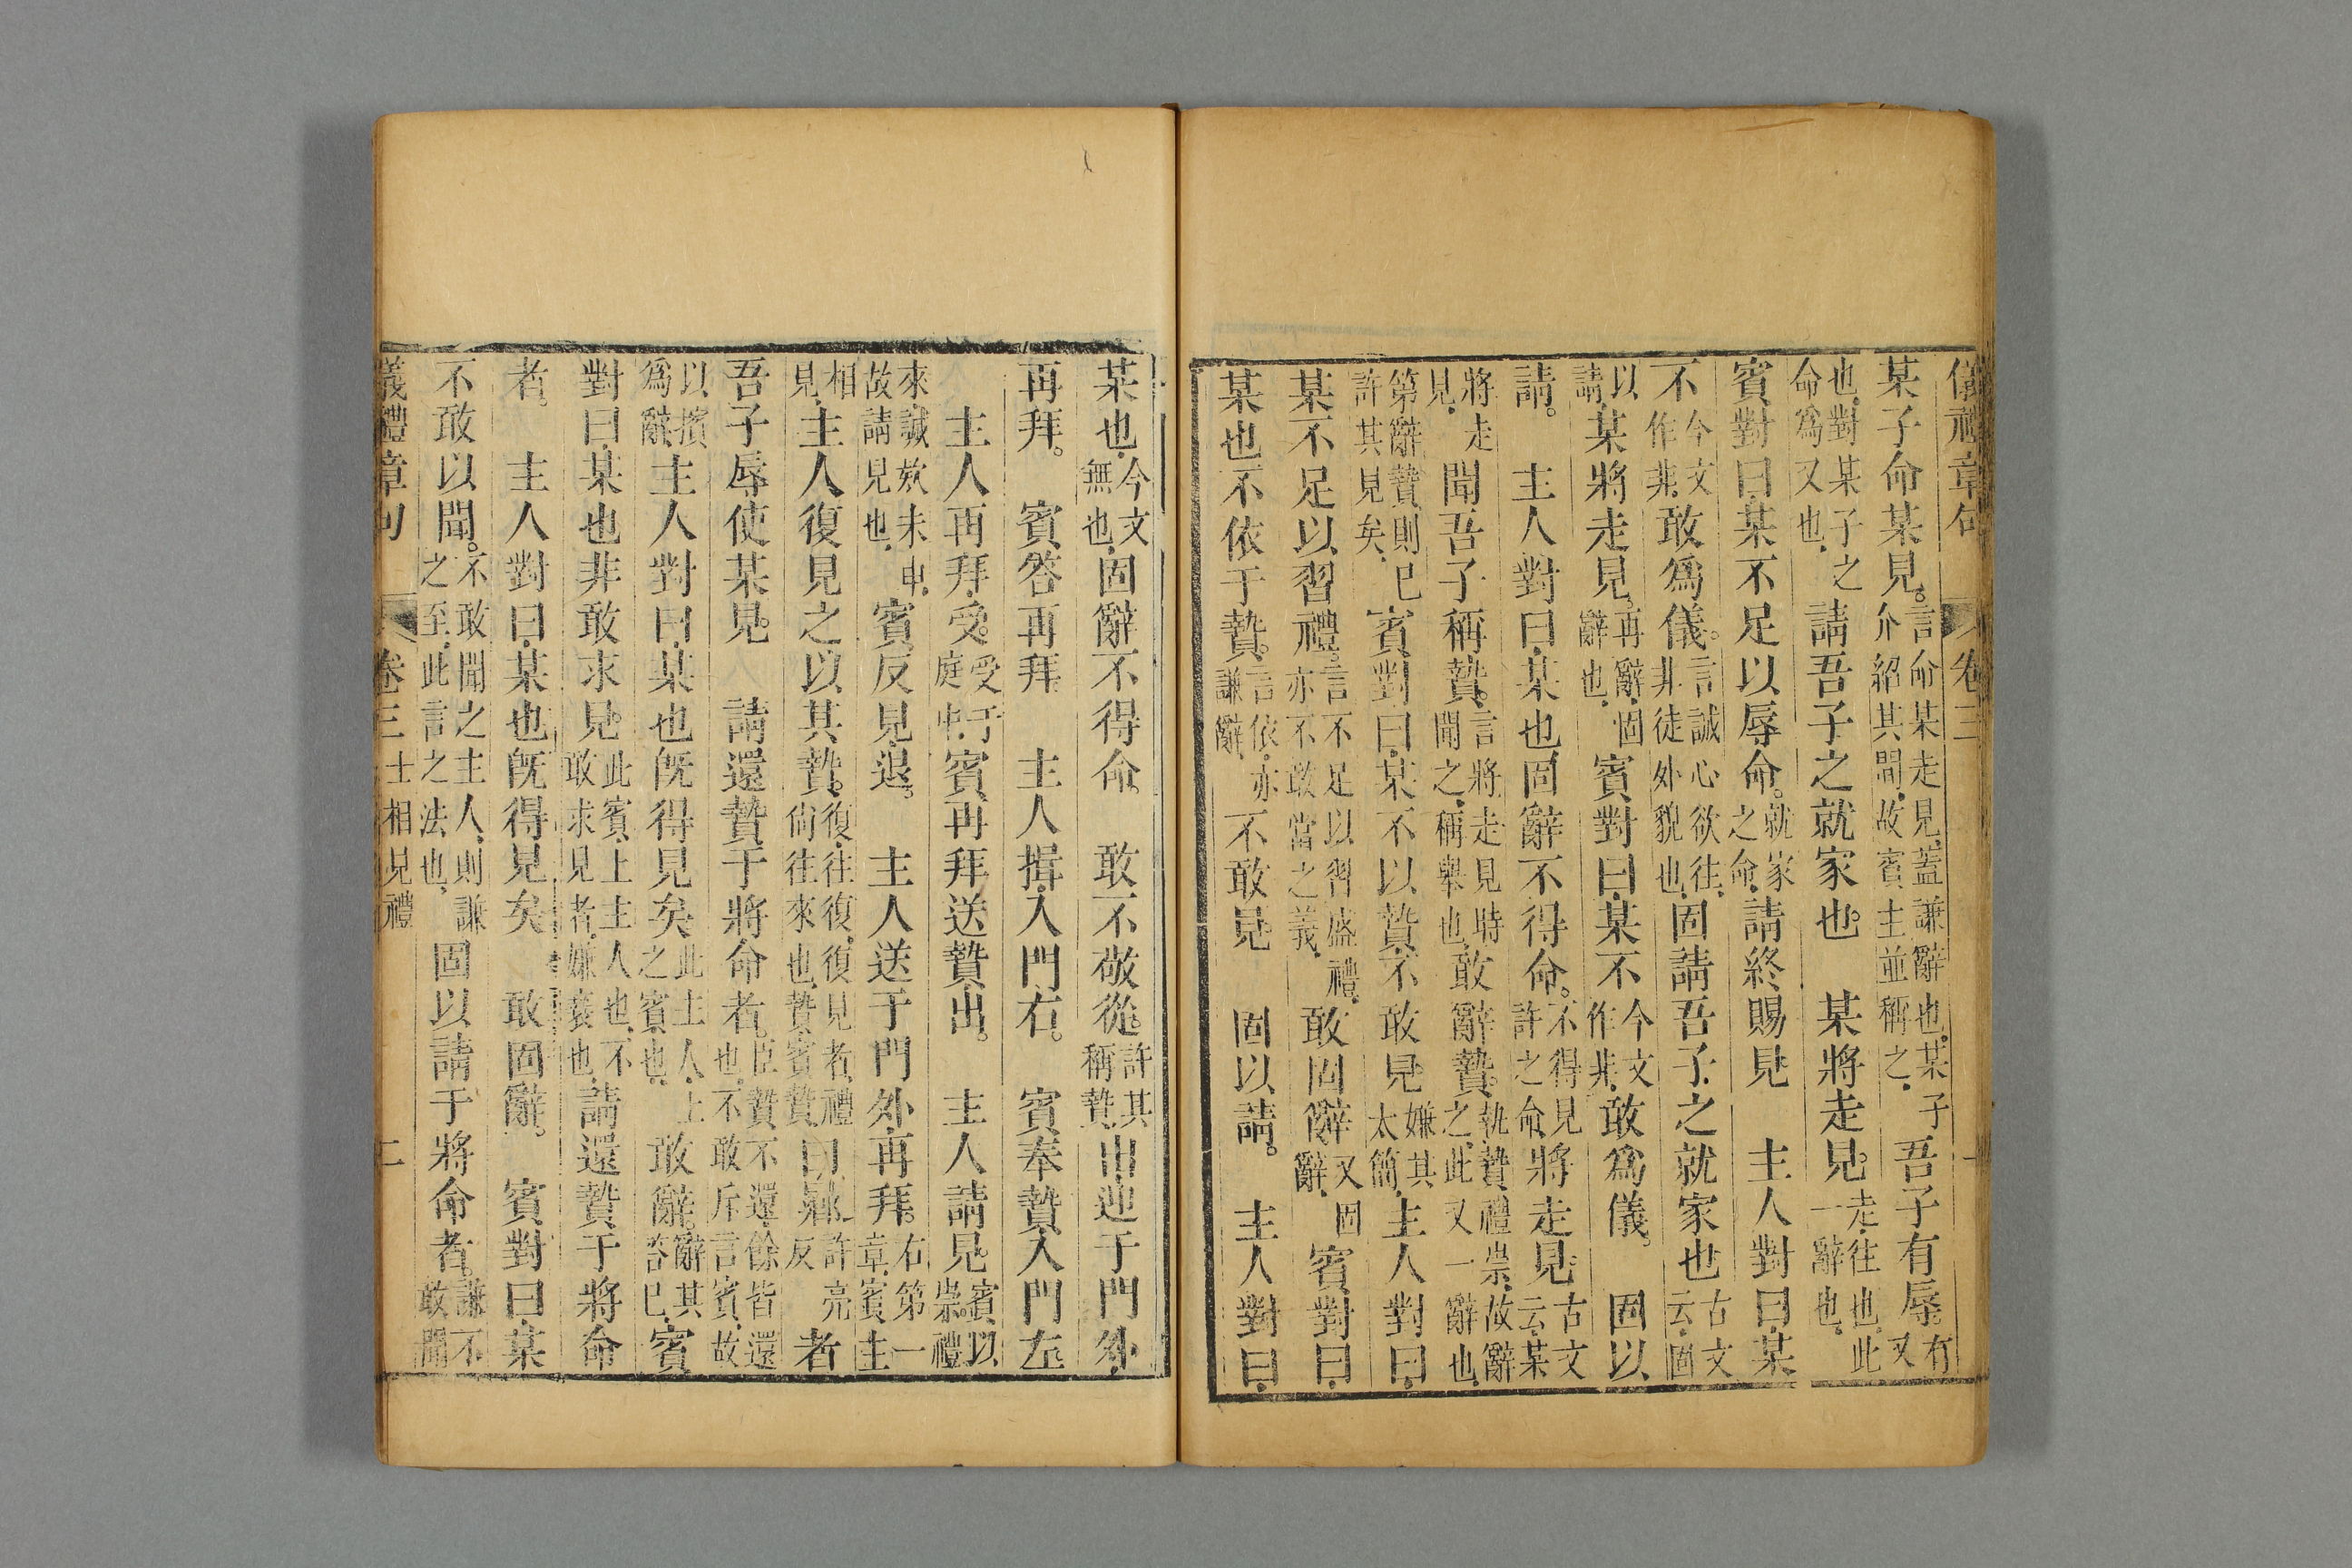 儀禮章句 卷三 一
某子命某見。言命某走見蓋謙辭也。某子介紹其間。故賓主並稱之。吾子有辱。有又
也。對某子之命爲又也。請吾子之就家也。某將走見。走往也。此一辭也。
賓對曰。某不足以辱命。就家之命。請終賜見。主人對曰。某
不今文作非。敢爲儀。言誠心欲往。非徒外貌也。固請吾子之就家也。古文云固
以請。某將走見。再辭。固辭也。賓對曰。某不今文作非。敢爲儀。固以
請。主人對曰。某也固辭不得命。不得見許之命。將走見。古文云某
將走見。聞吾子稱贄。言將走見時聞之。稱舉也。敢辭贄。執贄禮崇。故辭之。此又一辭也。
第辭贄則已許其見矣。賓對曰。某不以贄。不敢見。嫌其太簡。主人對曰。
某不足以習禮。言不足以習盛禮。亦不敢當之義。敢固辭。又固辭。賓對曰。
某也不依于贄。言依。亦謙辭。不敢見。固以請。主人對曰。
某也。今文無也。固辭不得命。敢不敬從。許其稱贄。出迎于門外。
再拜。賓答再拜。主人揖。入門右。賓奉贄入門左。
主人再拜受。受于庭中。賓再拜送贄出。主人請見。賓以崇禮
來。誠欸未申。故請見也。賓反見退。主人送于門外再拜。右第一章。賓主
相見。主人復見之。以其贄。復。往復。復見者。禮尚往來也。贄賓贄。曰曏。許亮反 者
吾子辱使某見。請還贄于將命者。臣贄不還。餘皆還也。不敢斥言賓。故
以擯爲辭。主人對曰。某也既得見矣。此主人。上之賓也。敢辭。辭其答已。賓
對曰。某也非敢求見。此賓。上主人也。不敢求見者。嫌褻也。請還贄于將命
者。主人對曰。某也既得見矣。敢固辭。賓對曰。某
不敢以聞。不敢聞之主人。則謙之至。此言之法也。固以請于將命者。謙不敢聞
儀禮章句 卷三 士相見禮 二